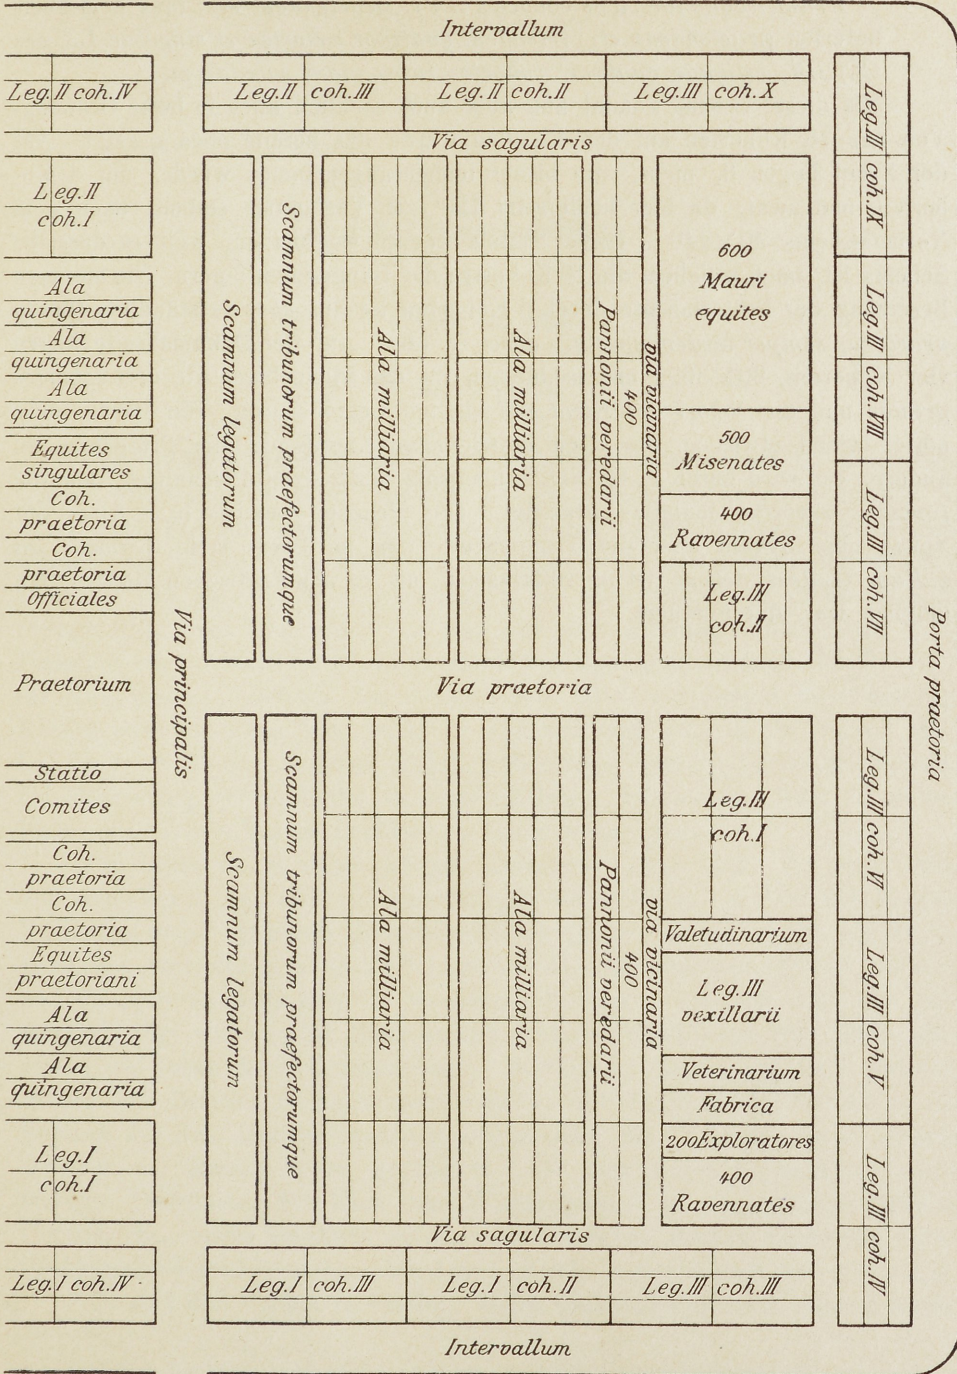 Intervallum
Leg. II coh. IV
Leg. II coh. III
Leg. II coh. II
Leg. III coh. X
Via sagularis
Leg. II
coh. I
Ala
quingenaria
Ala
quingenaria
Ala
quingenaria
Equites
singulares
Coh.
praetoria
Coh.
praetoria
Officiales
Praetorium
Statio
Comites
Coh.
praetoria
Coh.
praetoria
Equites
praetoriani
Ala
quingenaria
Ala
quingenaria
Leg. I
coh. I
Leg. I coh. IV
Via principalis
Scamnum legatorum
Scamnum tribunorum praefectorumque
Ala milliaria
Ala milliaria
Pannonii veredarii
400
via vicinaria
600
Mauri
equites
500
Misenates
400
Ravennates
Leg. III
coh. II
Leg. III coh. IX
Leg. III coh. VIII
Leg. III coh. VII
Via praetoria
Porta praetoria
Scamnum legatorum
Scamnum tribunorum praefectorumque
Ala milliaria
Ala milliaria
Pannonii veredarii
400
via vicinaria
Leg. III
coh. I
Valetudinarium
Leg. III
vexillarii
Veterinarium
Fabrica
200 Exploratores
400
Ravennates
Leg. III coh. VI
Leg. III coh. V
Leg. III coh. IV
Via sagularis
Leg. I coh. III
Leg. I coh. II
Leg. III coh. III
Intervallum